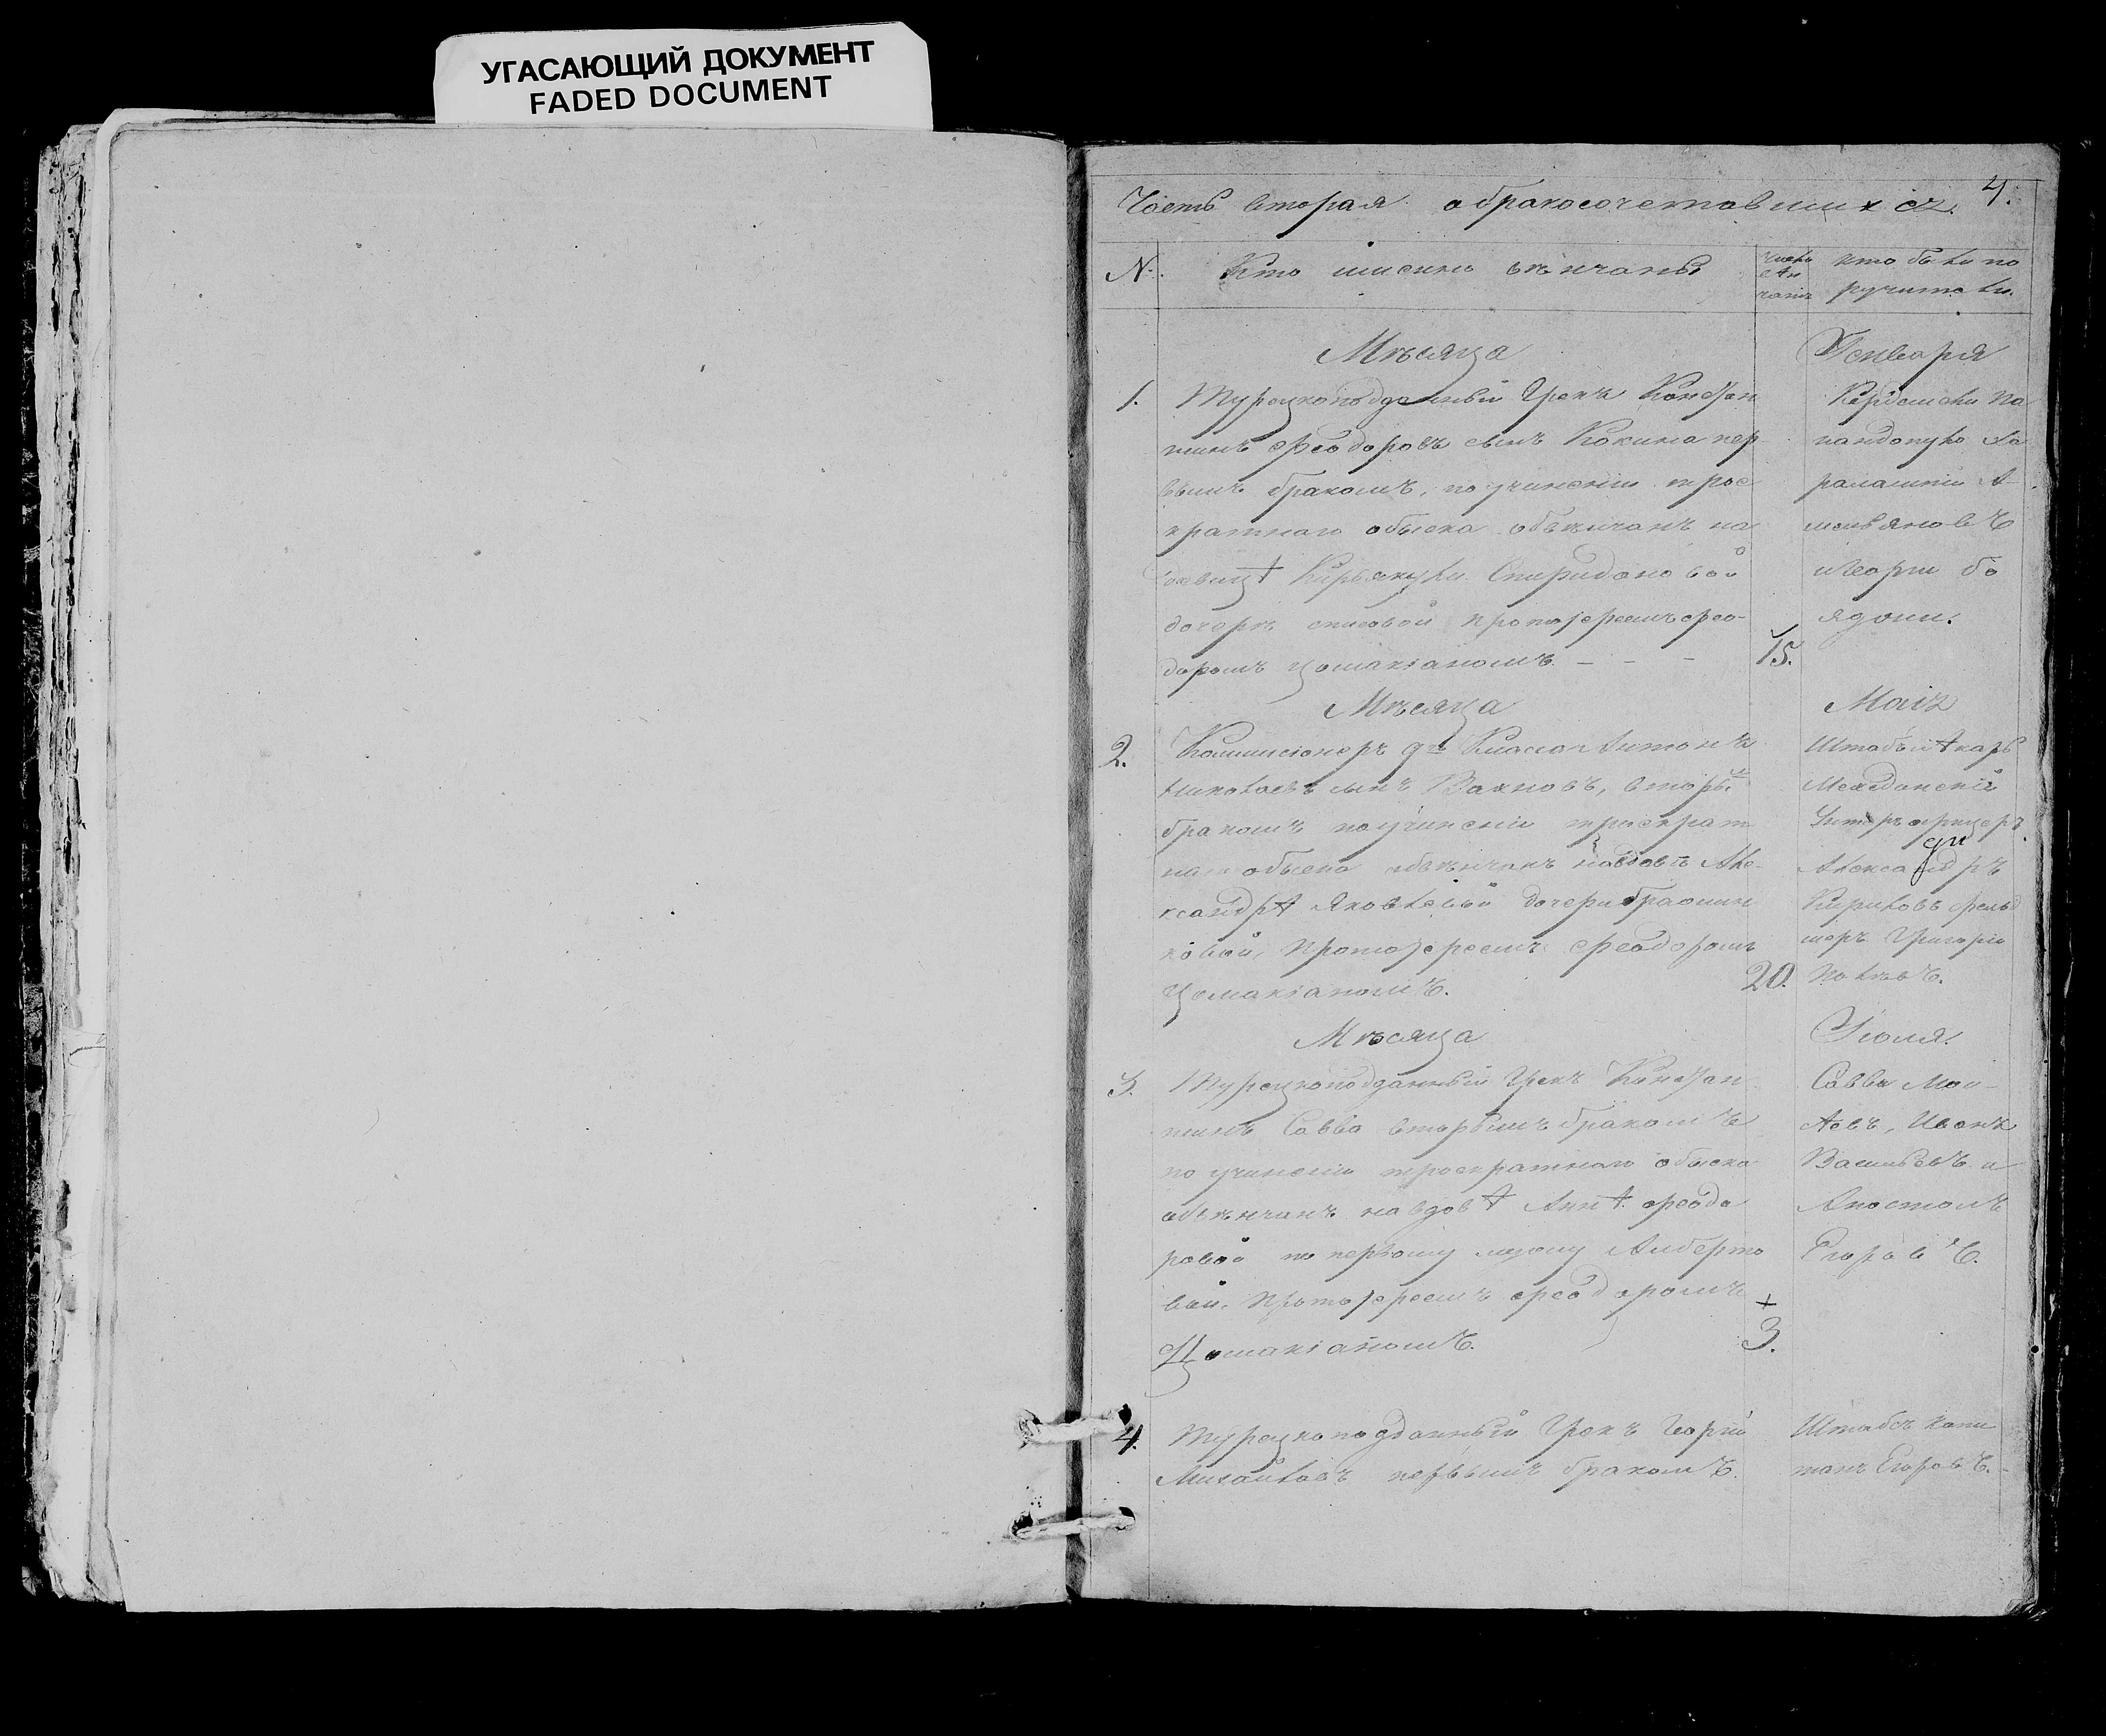 УГАСАЮЩИЙ ДОКУМЕНТ
FADED DOCUMENT
4.
Часть вторая о бракосочетавшихся.
№. Кто имянно вѣнчаны
кто были по
ручители.
Мѣсяца Генваря
1. Турецкоподданный Грекъ Констан
тинъ Феодоровъ сынъ Кокина пер
вымъ бракомъ, по учиненіи трое
кратнаго обыска обвѣнчанъ на
девицѣ Кирьякули Спиридоновой
дочерѣ протоіереемъ Фео-
доромъ Цомакіаномъ. – – –
15.
па
пандопуло Ха
рлампій
и Георги бо
ядони.
Мѣсяца Маія
2. Коммисіонеръ 9го Класса Антонъ
Николаевъ сынъ Вахновъ, вторы.м
бракомъ по учиненіи троекрат
наго обыска обвѣнчанъ на вдовѣ Але-
ксандрѣ Яковлевой дочери
ковой, Протоіереемъ Феодоромъ
Цомакіаномъ.
20.
Штабълѣкарь
Македонскій
Унтеръ офицеръ
Александръ
Кириловъ фельд
шеръ Григорій
Мѣсяца Іюля.
3. Турецкоподданный Грекъ Констан
тинъ Савва вторымъ бракомъ
по учиненіи троекратнаго обыска
обвѣнчанъ на вдовѣ Аннѣ Феодо
ровой по первому мужу Алберто
вой, Протоіереемъ Феодоромъ
Цомакіаномъ.
3.
Савва
Иванъ
Васильевъ и
Апостолъ
Егоровъ.
4. Турецкоподданный Грекъ Георгій
Михайловъ первымъ бракомъ.
Штабсъ капи
танъ Егоровъ.